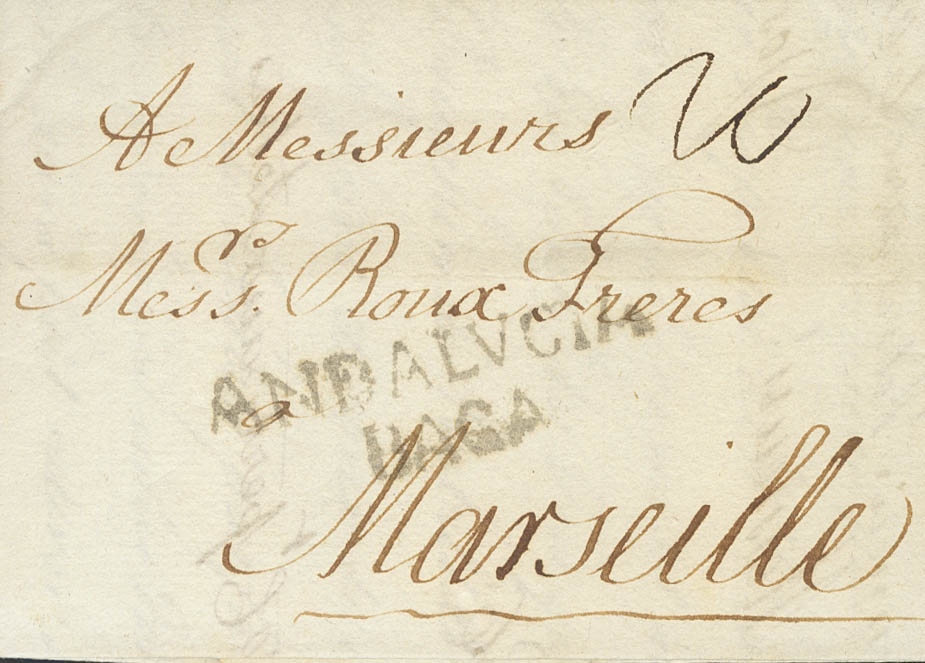 A Messieurs
Mess.rs Roux Freres
ANDALVCIA
BAGA
a
Marseille